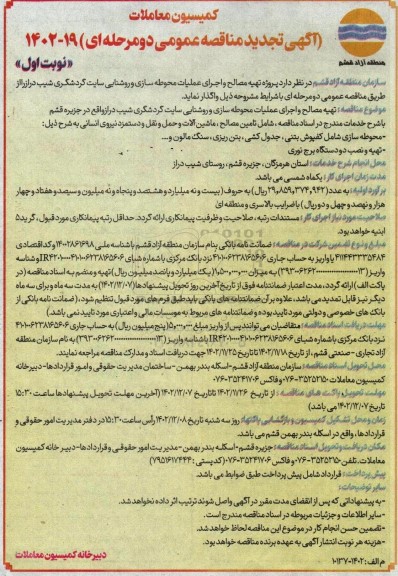 کمیسیون معاملات
(آگهی تجدید مناقصه عمومی دو مرحله ای) ۱۹-۱۴۰۲
«نوبت اول»
منطقه آزاد قشم
سازمان منطقه آزاد قشم در نظر دارد پروژه تهیه مصالح و اجرای عملیات محوطه سازی و روشنایی سایت گردشگری شیب دراز را از
طریق مناقصه عمومی دو مرحله ای با شرایط مشروحه ذیل واگذار نماید.
موضوع مناقصه: تهیه مصالح و اجرای عملیات محوطه سازی و روشنایی سایت گردشگری شیب دراز واقع در جزیره قشم
با شرح خدمات مندرج در اسناد مناقصه، شامل تامین مصالح، ماشین آلات و حمل و نقل و دستمزد نیروی انسانی به شرح ذیل:
-محوطه سازی شامل کفپوش بتنی، جدول کشی، بتن ریزی، سنگ مالون و...
-تهیه و نصب دو دستگاه برج نوری
محل انجام شرح خدمات: استان هرمزگان، جزیره قشم، روستای شیب دراز
مدت زمان اجرای کار: یکماه شمسی می باشد.
برآورد اولیه: به عدد (۲۹،۸۵۹،۳۷۴،۹۴۲ ریال) به حروف (بیست و نه میلیارد و هشتصد و پنجاه و نه میلیون و سیصد و هفتاد و چهار
هزار و نهصد و چهل و دو ریال) با ضرایب بالاسری و منطقه ای
صلاحیت مورد نیاز اجرای کار: مستندات رتبه، صلاحیت و ظرفیت پیمانکاری ارائه گردد. حداقل رتبه پیمانکاری مورد قبول، گرید ۵
ابنیه خواهد بود.
مبلغ و نوع تضمین شرکت در مناقصه: ضمانت نامه بانکی بنام سازمان منطقه آزاد قشم با شناسه ملی ۱۴۰۰۲۸۶۱۶۹۸ و کد اقتصادی
۴۱۱۴۳۳۳۵۴۸۴ یا واریز به حساب جاری
(پاکت الف) ارائه گردد، مدت اعتبار ضمانتنامه فوق از تاریخ آخرین روز تحویل پیشنهادها (۱۴۰۲/۱۲/۰۷) به مدت سه ماه و برای سه ماه
دیگر نیز قابل تمدید می باشد، علاوه بر آن ضمانتنامه های بانکی باید طبق فرم های مورد قبول تنظیم شود، (ضمانت نامه بانکی از
بانک های خصوصی و دولتی مورد تایید بوده و ضمانتنامه های مربوط به موسسات مالی و اعتباری مورد تایید نمی باشد)
مهلت دریافت اسناد مناقصه: متقاضیان می توانند پس از واریز مبلغ ۵،۰۰۰،۰۰۰ (پنج میلیون ریال) به حساب جاری
به نام سازمان منطقه
آزاد تجاری - صنعتی قشم، از تاریخ ۱۴۰۲/۱۱/۱۸ تا تاریخ ۱۴۰۲/۱۱/۲۵ جهت دریافت اسناد و مدارک مناقصه مراجعه نمایند.
محل تحویل اسناد مناقصه: سازمان منطقه آزاد قشم-اسکله بندر بهمن - ساختمان مدیریت حقوقی و امور قراردادها- دبیرخانه
کمیسیون معاملات ۳۵۲۵۲۱۵۰-۰۷۶ و فاکس ۳۵۲۴۱۷۰۶-۰۷۶
مهلت تحویل پاکت های مناقصه: از تاریخ ۱۴۰۲/۱۱/۲۶ تا تاریخ ۱۴۰۲/۱۲/۰۷ (آخرین مهلت تحویل پیشنهادها ساعت ۱۵:۳۰
تاریخ ۱۴۰۲/۱۲/۰۷ می باشد)
زمان و محل تشکیل کمیسیون و بازگشایی پاکتها: روز سه شنبه تاریخ ۱۴۰۲/۱۲/۰۸ رأس ساعت ۱۵:۳۰ در دفتر مدیریت امور حقوقی و
قراردادها، واقع در اسکله بندر بهمن قشم می باشد.
مکان دریافت و تحویل اسناد مناقصه: جزیره قشم - اسکله بندر بهمن - مدیریت امور حقوقی و قراردادها- دبیر خانه کمیسیون
معاملات. تلفن ۳۵۲۵۲۱۵۰-۰۷۶ و فاکس ۳۵۲۴۱۷۰۶-۰۷۶ (کدپستی: ۷۹۵۱۶۱۷۴۴۴)
پیش پرداخت: قرارداد شامل پیش پرداخت طبق ضوابط می باشد.
سایر توضیحات:
-به پیشنهاداتی که پس از انقضای مدت مقرر در آگهی واصل شوند ترتیب اثر داده نخواهد شد.
-سایر اطلاعات و جزئیات مربوطه در اسناد مناقصه مندرج است.
-تضمین حسن انجام کار در موضوع این مناقصه لحاظ خواهد شد.
-هزینه هر نوبت انتشار آگهی به عهده برنده مناقصه خواهد بود.
دبیرخانه کمیسیون معاملات
م الف: ۱۰۱۳۷-۱۴۰۲